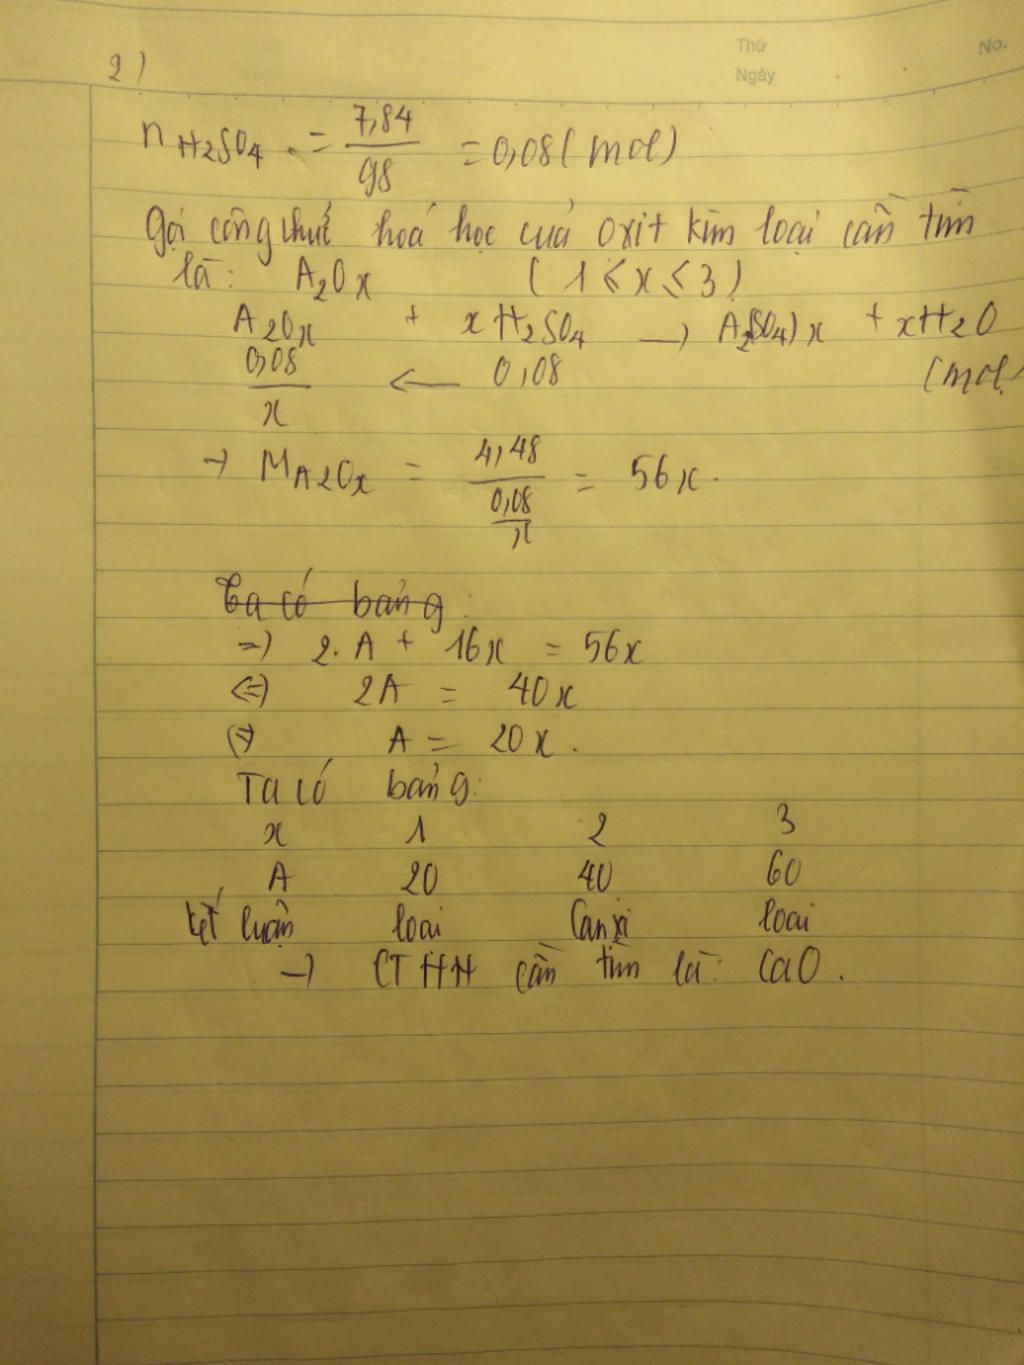 Thứ
No.
Ngày
2)
n H2SO4 = 7,84/98 = 0,08 (mol)
Gọi công thức hoá học của oxit kim loại cần tìm
là: A2Ox (1 ≤ x ≤ 3)
A2Ox + xH2SO4 → A2(SO4)x + xH2O
0,08/x ← 0,08 (mol)
→ M A2Ox = 4,48/(0,08/x) = 56x.
Ta có bảng:
=) 2.A + 16x = 56x
(=) 2A = 40x
(=) A = 20x.
Ta có bảng:
x 1 2 3
A 20 40 60
Kết luận loại Canxi loại
→ CTHH cần tìm là: CaO.